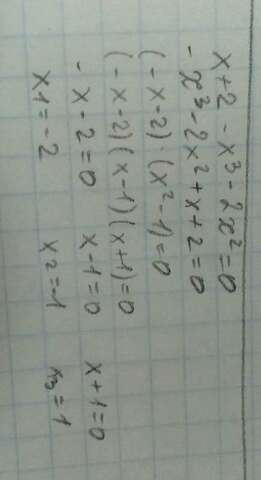 x + 2 - x³ - 2x² = 0
- x³ - 2x² + x + 2 = 0
(- x - 2) · (x² - 1) = 0
(- x - 2) (x - 1) (x + 1) = 0
- x - 2 = 0 x - 1 = 0 x + 1 = 0
x1 = - 2 x2 = -1 x3 = 1